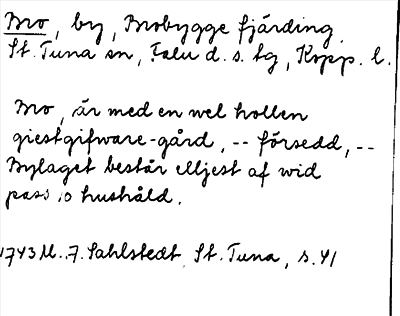 Bro, by, Brobygge fjärding.
St. Tuna sn, Falu d. s. tg, Kopp. l.
Bro, är med en wel hollen
giestgifware-gård, -- försedd, --
Bylaget består elljest af wid
pass 10 hushåld.
1743 M. F. Sahlstedt, St. Tuna, s. 41